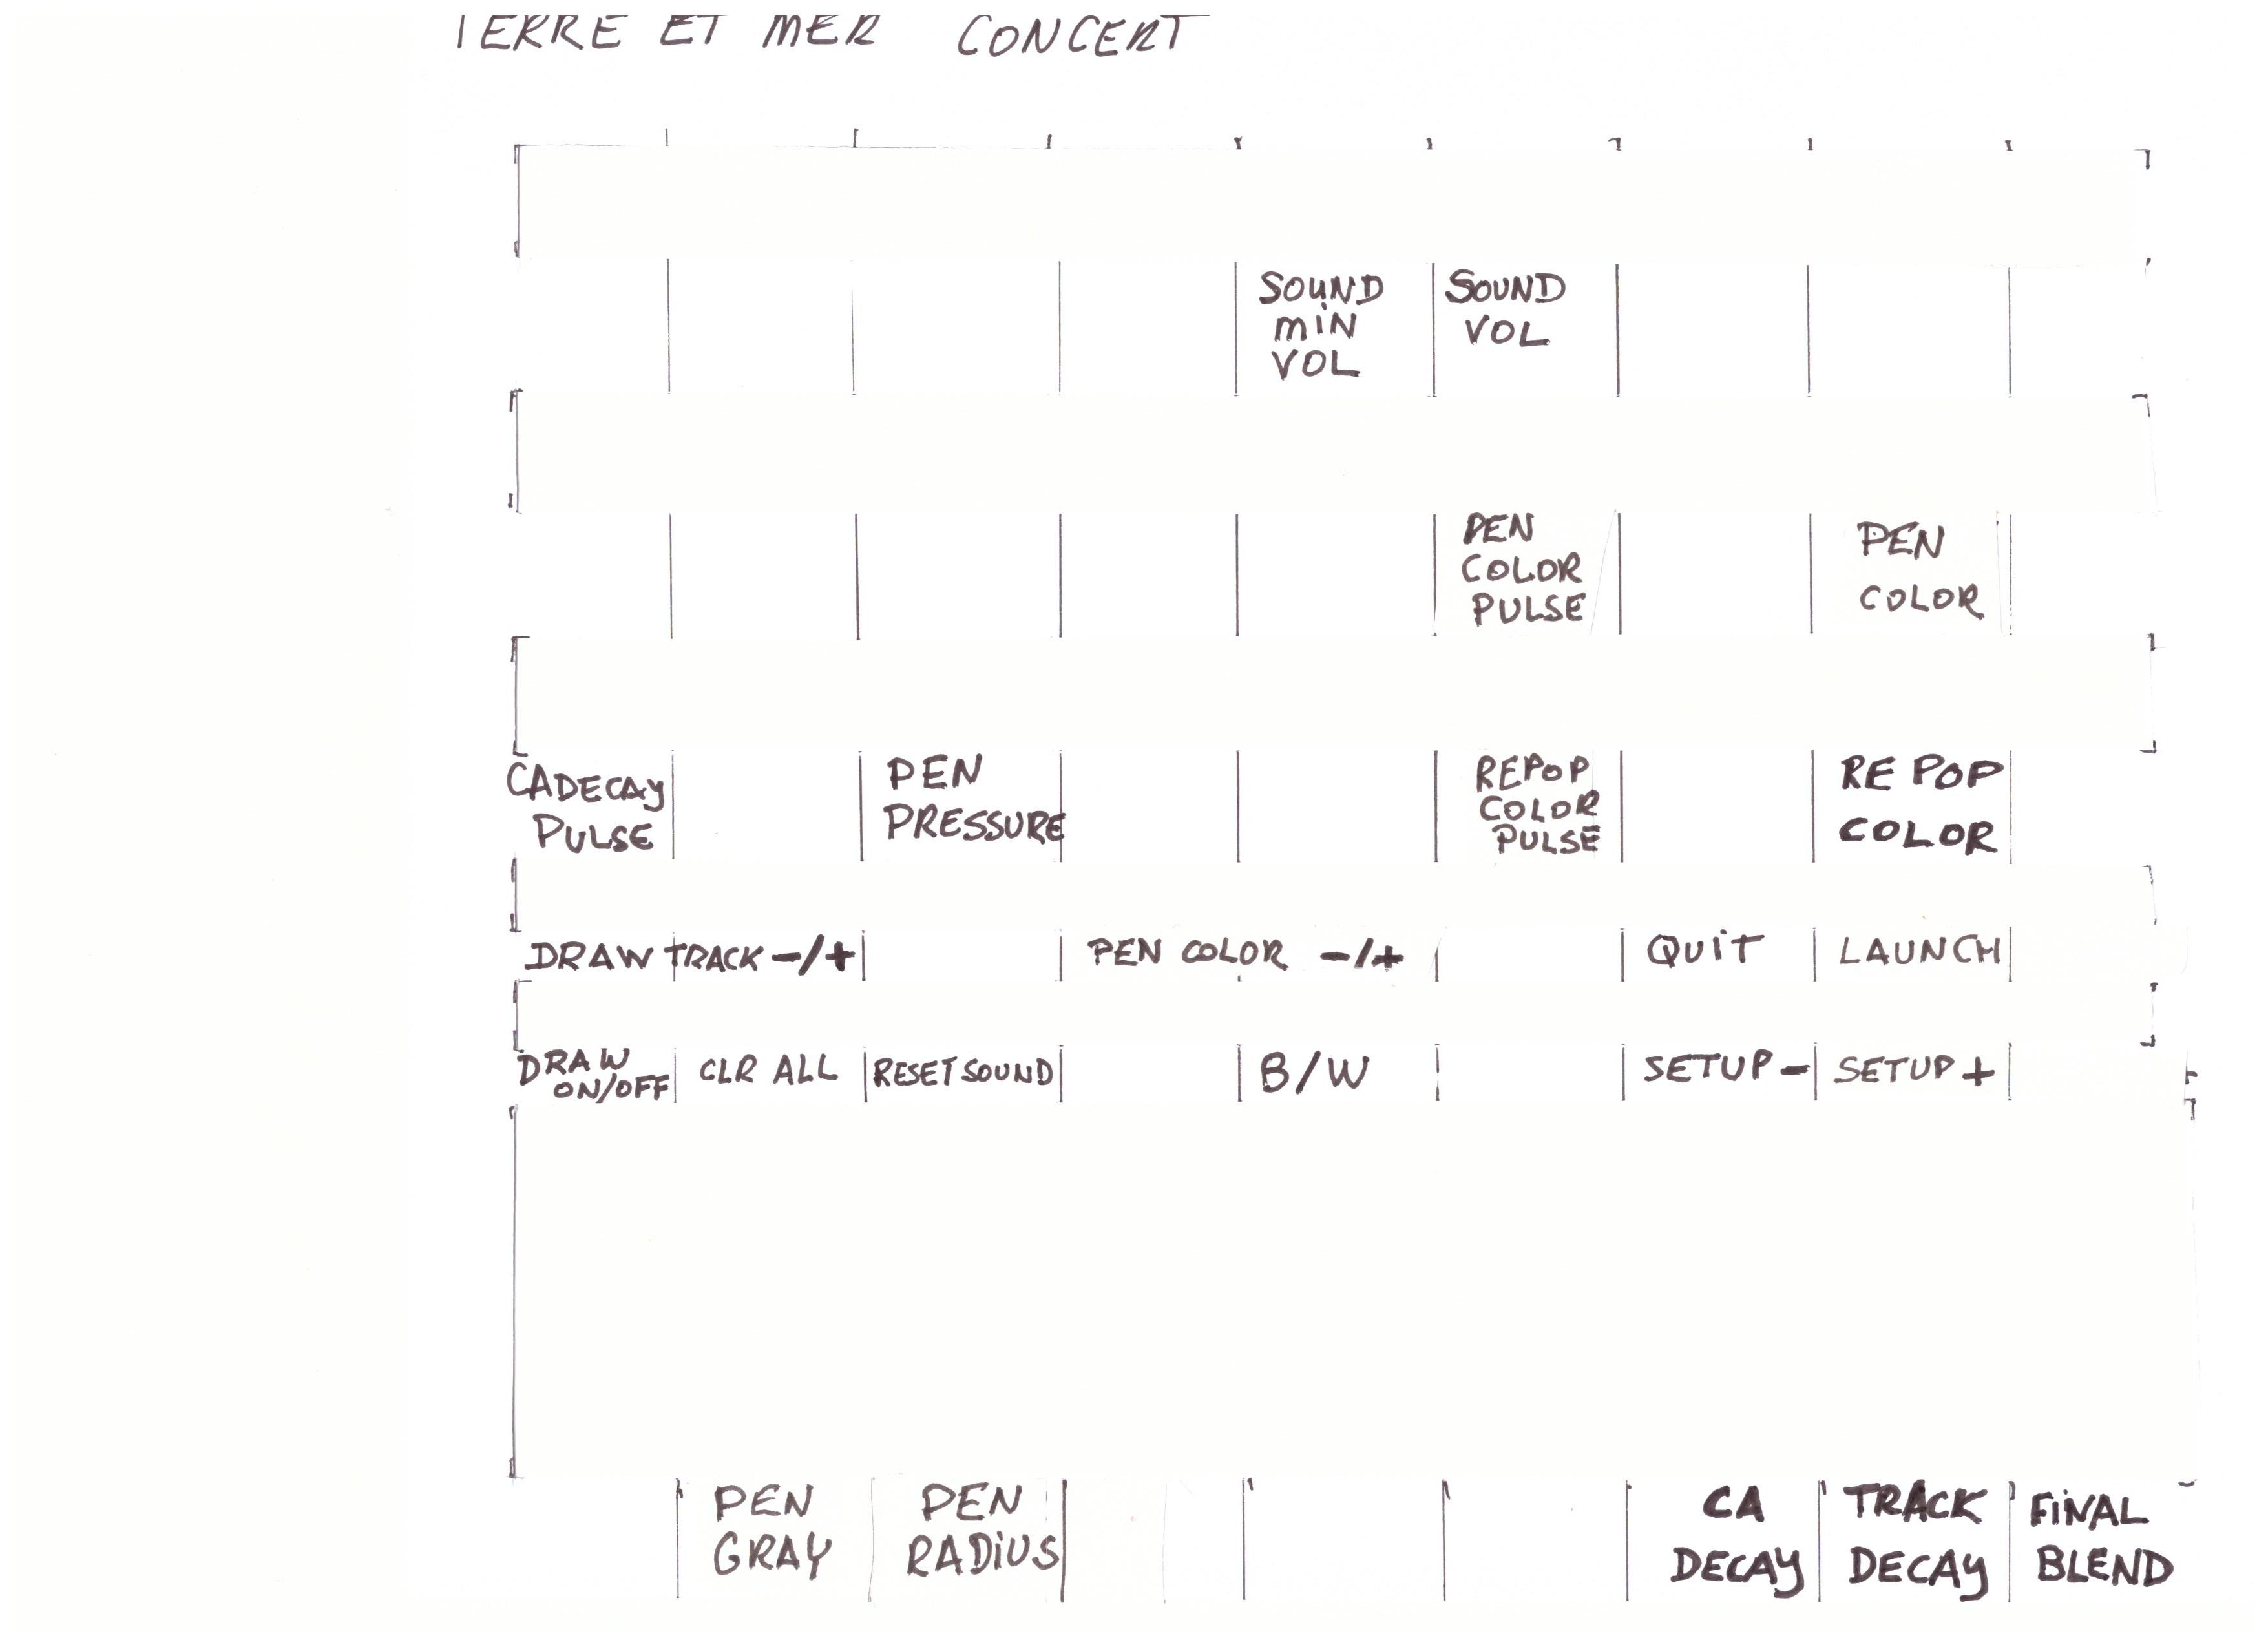 TERRE ET MER CONCERT
SOUND MIN VOL
SOUND VOL
PEN COLOR PULSE
PEN COLOR
CADECAY PULSE
PEN PRESSURE
REPOP COLOR PULSE
REPOP COLOR
DRAW TRACK -/+
PEN COLOR -/+
QUIT
LAUNCH
DRAW ON/OFF
CLR ALL
RESET SOUND
B/W
SETUP -
SETUP +
PEN GRAY
PEN RADIUS
CA DECAY
TRACK DECAY
FINAL BLEND